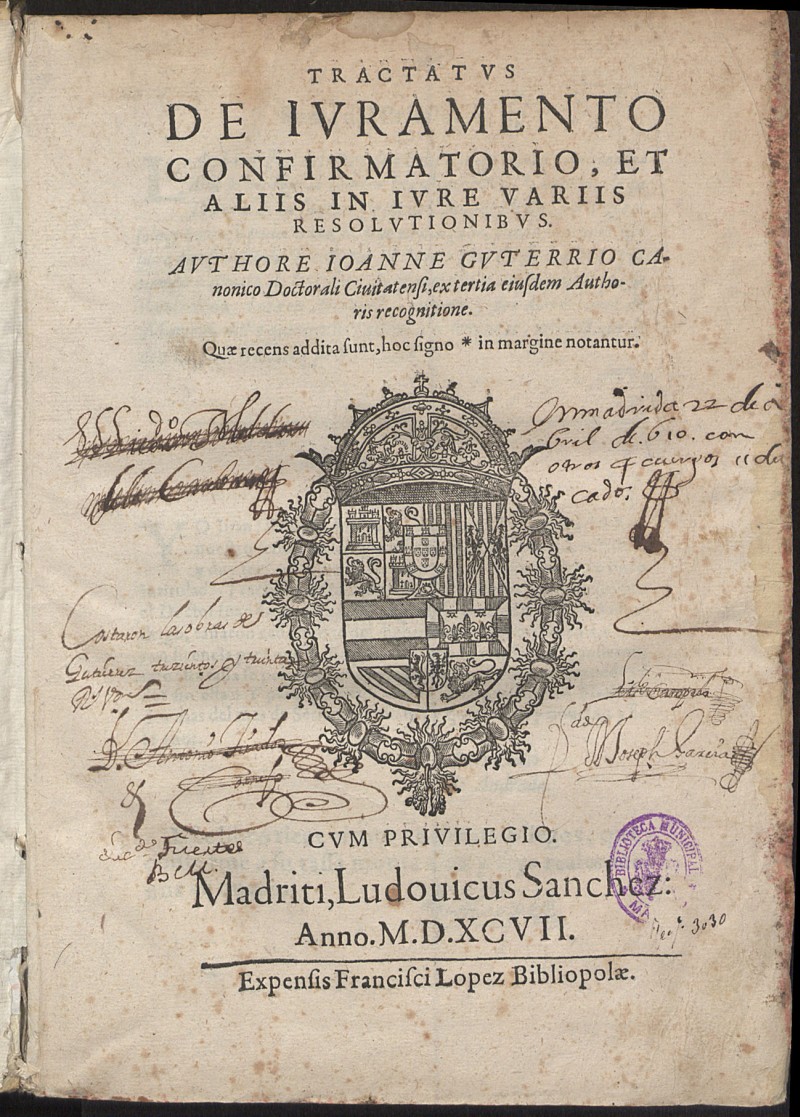 TRACTATVS
DE IVRAMENTO
CONFIRMATORIO, ET
ALIIS IN IVRE VARIIS
RESOLVTIONIBVS.
AVTHORE IOANNE GVTERRIO CA-
nonico Doctorali Ciuitatenſi, ex tertia eiuſdem Autho-
ris recognitione.
Quæ recens addita ſunt, hoc ſigno * in margine notantur.
En madrid a 22 de a
bril de 610. con
otros 4 cuerpos 11 du
cados
Costaron las obras de
Gutierrez trezientos y treinta
Rs
de
Joseph Garcia
Fuentes
CVM PRIVILEGIO.
BIBLIOTECA MUNICIPAL
Madriti, Ludouicus Sanchez:
3030
Anno. M.D.XCVII.
Expenſis Franciſci Lopez Bibliopolæ.